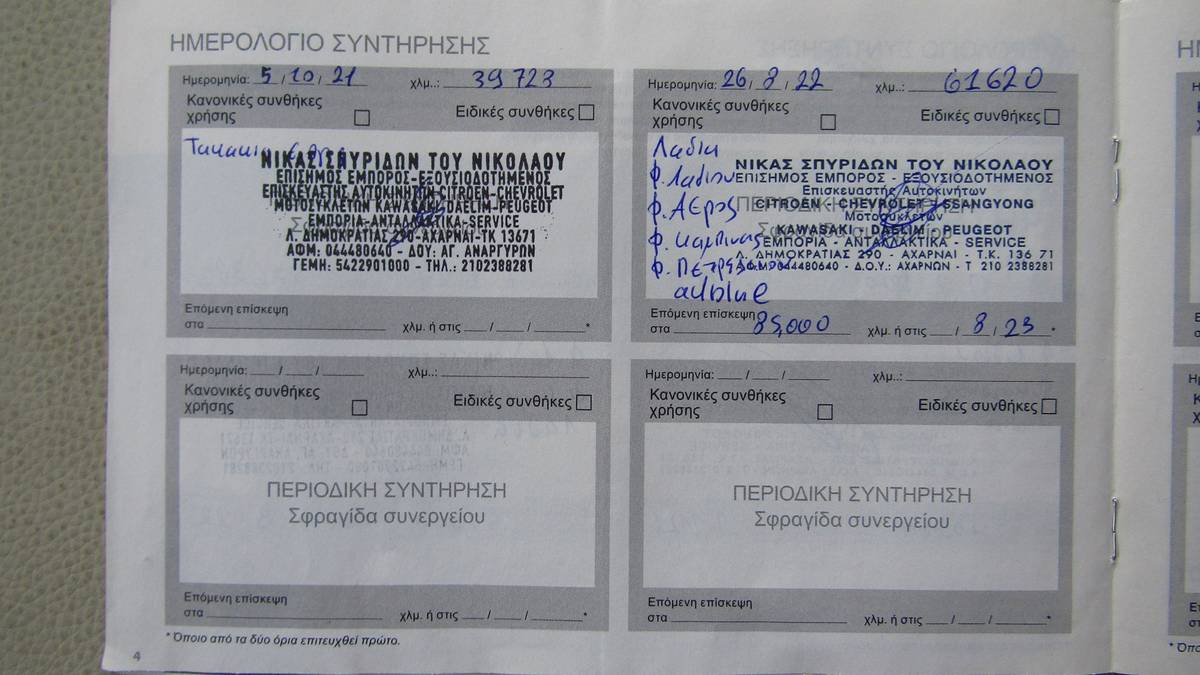 ΗΜΕΡΟΛΟΓΙΟ ΣΥΝΤΗΡΗΣΗΣ
Ημερομηνία: 5 / 10 / 21 χλμ..: 39723
Κανονικές συνθήκες χρήσης
Ειδικές συνθήκες
Τακακια
ΝΙΚΑΣ ΣΠΥΡΙΔΩΝ ΤΟΥ ΝΙΚΟΛΑΟΥ
ΕΠΙΣΗΜΟΣ ΕΜΠΟΡΟΣ-ΕΞΟΥΣΙΟΔΟΤΗΜΕΝΟΣ
ΕΠΙΣΚΕΥΑΣΤΗΣ ΑΥΤΟΚΙΝΗΤΩΝ CITROEN-CHEVROLET
ΜΟΤΟΣΥΚΛΕΤΩΝ KAWASAKI-DAELIM-PEUGEOT
ΕΜΠΟΡΙΑ-ΑΝΤΑΛΛΑΚΤΙΚΑ-SERVICE
Λ. ΔΗΜΟΚΡΑΤΙΑΣ 290-ΑΧΑΡΝΑΙ-ΤΚ 13671
ΑΦΜ: 044480640 - ΔΟΥ: ΑΓ. ΑΝΑΡΓΥΡΩΝ
ΓΕΜΗ: 5422901000 - ΤΗΛ.: 2102388281
Επόμενη επίσκεψη
στα χλμ. ή στις / / *
Ημερομηνία: 26 / 8 / 22 χλμ..: 61620
Κανονικές συνθήκες χρήσης
Ειδικές συνθήκες
Λαδια
Φ. Λαδιου
Φ. Αερος
Φ. Καμπινας
Φ.
adblue
ΝΙΚΑΣ ΣΠΥΡΙΔΩΝ ΤΟΥ ΝΙΚΟΛΑΟΥ
ΕΠΙΣΗΜΟΣ ΕΜΠΟΡΟΣ - ΕΞΟΥΣΙΟΔΟΤΗΜΕΝΟΣ
Επισκευαστής Αυτοκινήτων
CITROEN - CHEVROLET - SSANGYONG
Μοτοσυκλετών
KAWASAKI - DAELIM - PEUGEOT
ΕΜΠΟΡΙΑ - ΑΝΤΑΛΛΑΚΤΙΚΑ - SERVICE
Λ. ΔΗΜΟΚΡΑΤΙΑΣ 290 - ΑΧΑΡΝΑΙ - Τ.Κ. 136 71
Α.Φ.Μ. 044480640 - Δ.Ο.Υ.: ΑΧΑΡΝΩΝ - Τ 210 2388281
ΠΕΡΙΟΔΙΚΗ ΣΥΝΤΗΡΗΣΗ
Επόμενη επίσκεψη
στα 85,000 χλμ. ή στις / 8 / 23 *
Ημερομηνία: / / χλμ..:
Κανονικές συνθήκες χρήσης
Ειδικές συνθήκες
ΠΕΡΙΟΔΙΚΗ ΣΥΝΤΗΡΗΣΗ
Σφραγίδα συνεργείου
Επόμενη επίσκεψη
στα χλμ. ή στις / / *
Ημερομηνία: / / χλμ..:
Κανονικές συνθήκες χρήσης
Ειδικές συνθήκες
ΠΕΡΙΟΔΙΚΗ ΣΥΝΤΗΡΗΣΗ
Σφραγίδα συνεργείου
Επόμενη επίσκεψη
στα χλμ. ή στις / / *
* Όποιο από τα δύο όρια επιτευχθεί πρώτο.
4